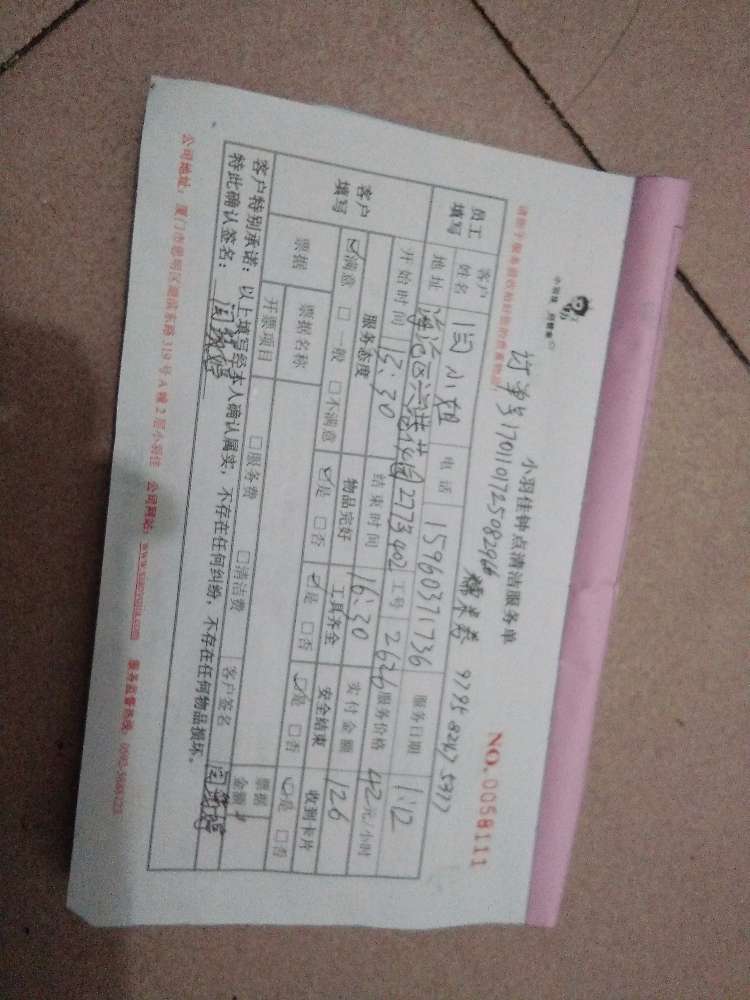 小羽佳钟点清洁服务单
NO.0058111
订单号1701101725082966 糯米券 9795 8247 5377
请您于服务前收拾好您的贵重物品
员工填写 客户姓名 闫小姐 电话 15960371736 服务日期 1.12
地址 2773 402 工号 2626 服务价格 42元/小时
开始时间 13:30 结束时间 16:30 实付金额 126
客户填写 服务态度 物品完好 工具齐全 安全结束 收到卡片
☑满意 □一般 □不满意 ☑是 □否 ☑是 □否 ☑是 □否 ☑是 □否
票据 票据名称 票据金额
开票项目 □服务费 □清洁费 客户签名
客户特别承诺:以上填写经本人确认属实,不存在任何纠纷,不存在任何物品损坏。
特此确认签名:
公司地址:厦门市思明区湖滨东路319号A幢2层小羽佳 公司网站: 服务监督热线: